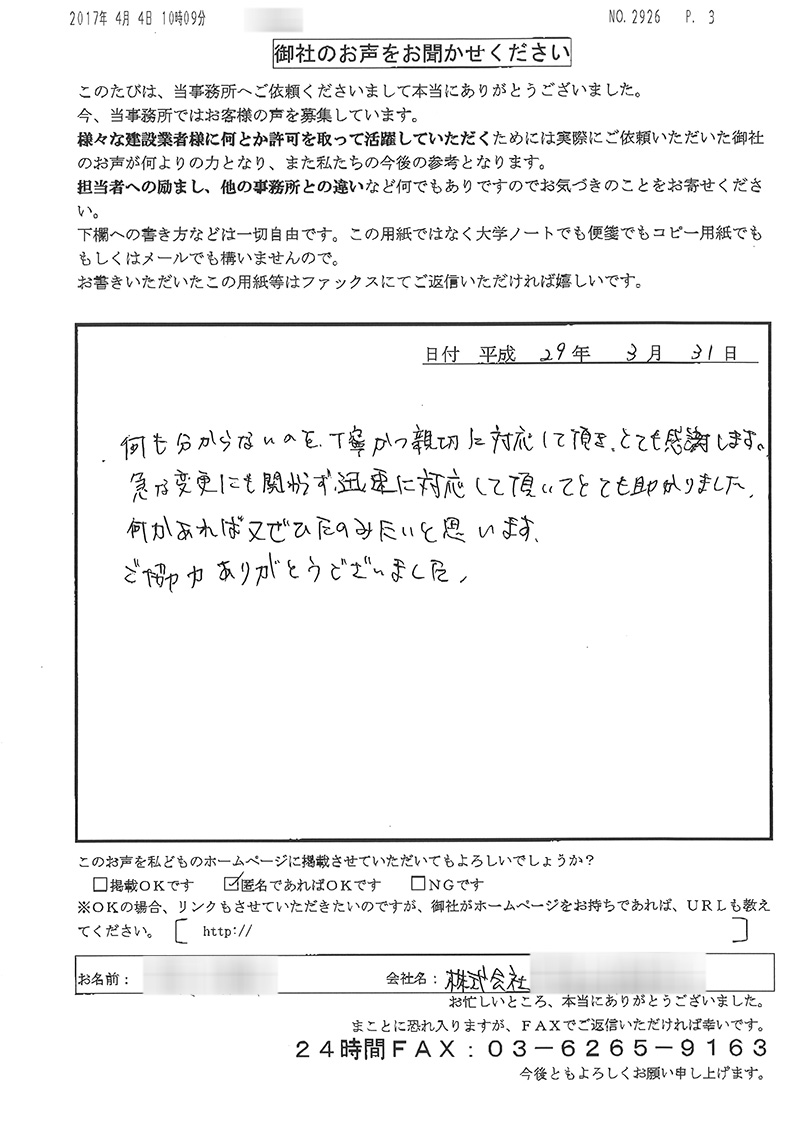 2017年 4月 4日 10時09分 NO. 2926 P. 3
御社のお声をお聞かせください
このたびは、当事務所へご依頼くださいまして本当にありがとうございました。
今、当事務所ではお客様の声を募集しています。
様々な建設業者様に何とか許可を取って活躍していただくためには実際にご依頼いただいた御社
のお声が何よりの力となり、また私たちの今後の参考となります。
担当者への励まし、他の事務所との違いなど何でもありですのでお気づきのことをお寄せくださ
い。
下欄への書き方などは一切自由です。この用紙ではなく大学ノートでも便箋でもコピー用紙でも
もしくはメールでも構いませんので。
お書きいただいたこの用紙等はファックスにてご返信いただければ嬉しいです。
日付 平成 29年 3月 31日
何も分からないのを、丁寧かつ親切に対応して頂き、とても感謝します。
急な変更にも関わらず迅速に対応して頂いてとても助かりました。
何かあれば又ぜひたのみたいと思います。
ご協力ありがとうございました。
このお声を私どものホームページに掲載させていただいてもよろしいでしょうか？
□掲載OKです ☑匿名であればOKです □NGです
※OKの場合、リンクもさせていただきたいのですが、御社がホームページをお持ちであれば、URLも教え
てください。 [ http:// ]
お名前： 会社名：株式会社
お忙しいところ、本当にありがとうございました。
まことに恐れ入りますが、FAXでご返信いただければ幸いです。
24時間FAX：03－6265－9163
今後ともよろしくお願い申し上げます。